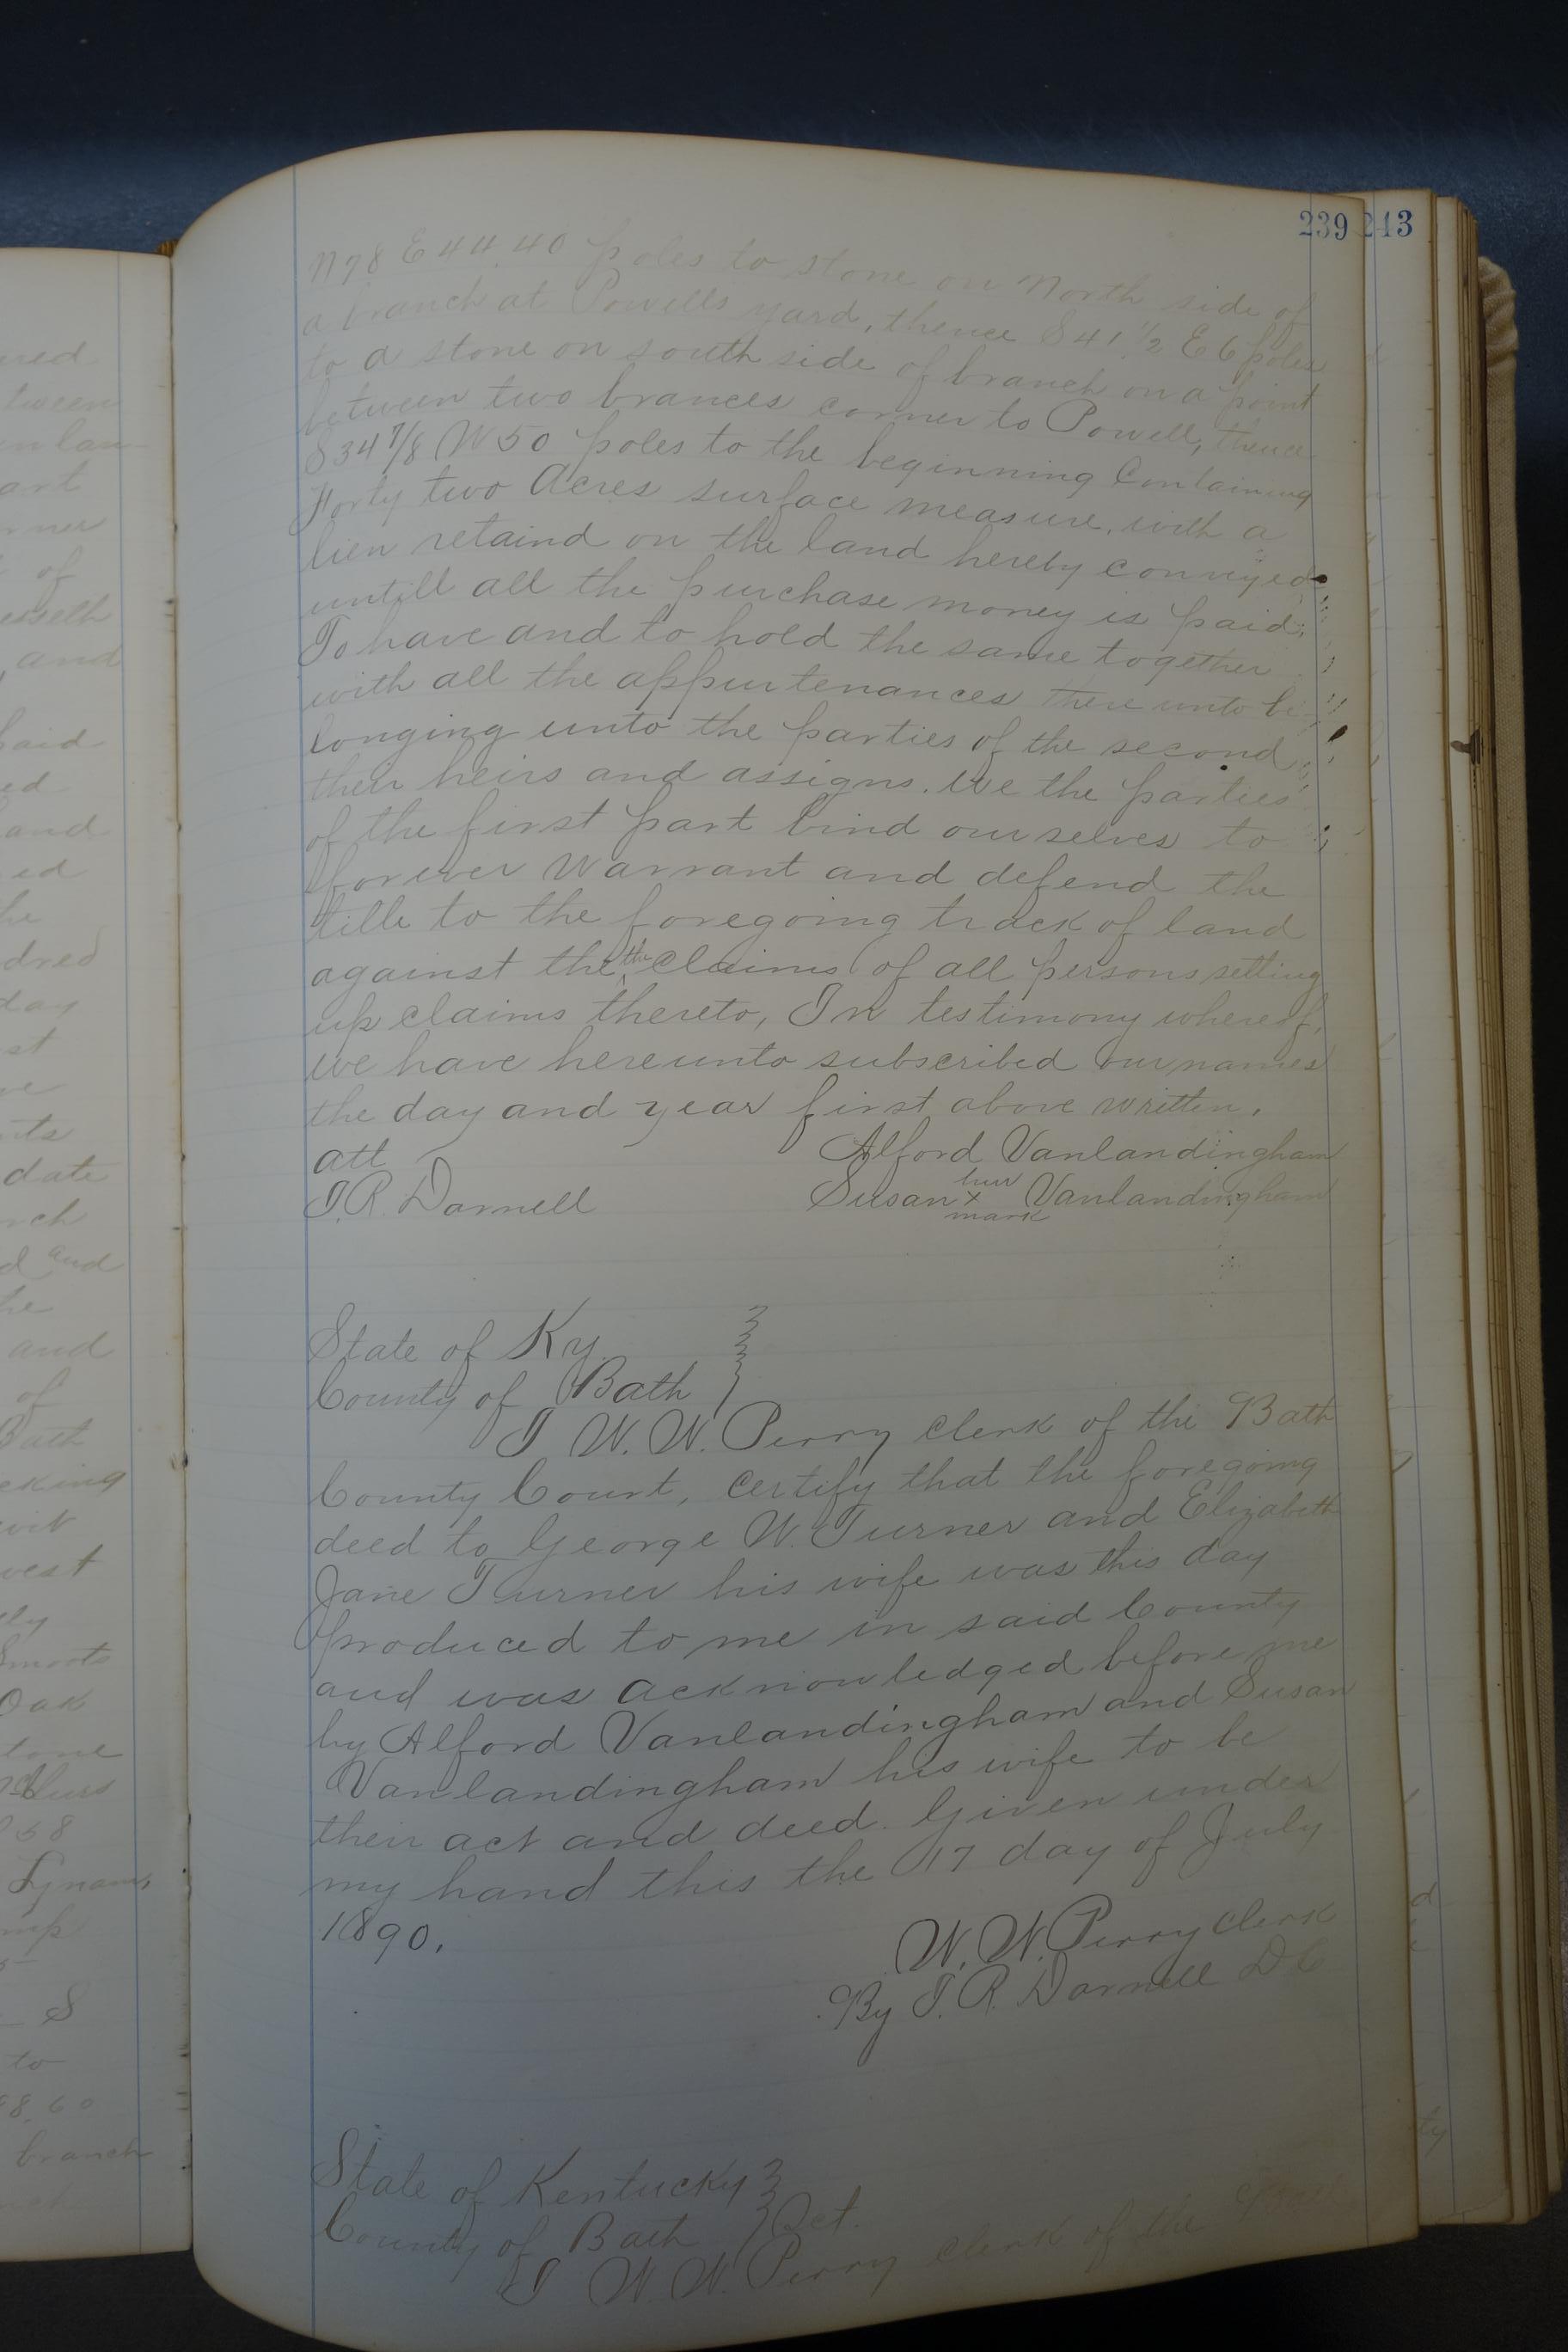 239 243
N 78 E 44.40 poles to stone on North side of
a branch at Powells yard, thence S 41 1/2 E 6 poles
to a stone on south side of branch on a point
between two brances corner to Powell, thence
S 34 7/8 W 50 poles to the beginning Containing
Forty two Acres surface measure, with a
lien retaind on the land hereby conveyed
untill all the purchase money is paid.
To have and to hold the same together
with all the appurtenances there unto be
longing unto the parties of the second
their heirs and assigns. We the parties
of the first part bind ourselves to
forever Warrant and defend the
title to the foregoing track of land
against the the Claims of all persons setting
up claims thereto, In testimony whereof,
we have hereunto subscribed our names
the day and year first above written.
att Alford Vanlandingham
T. R. Darnell Susan her x mark Vanlandingham
State of Ky.
County of Bath
I W. W. Perry clerk of the Bath
County Court, certify that the foregoing
deed to George W. Turner and Elizabeth
Jane Turner his wife was this day
produced to me in said County
and was acknowledged before me
by Alford Vanlandingham and Susan
Vanlandingham his wife to be
their act and deed. Given under
my hand this the 17 day of July
1890.
W. W. Perry Clerk
By T. R. Darnell D C
State of Kentucky
County of Bath Sct.
I W. W. Perry clerk of the Bath